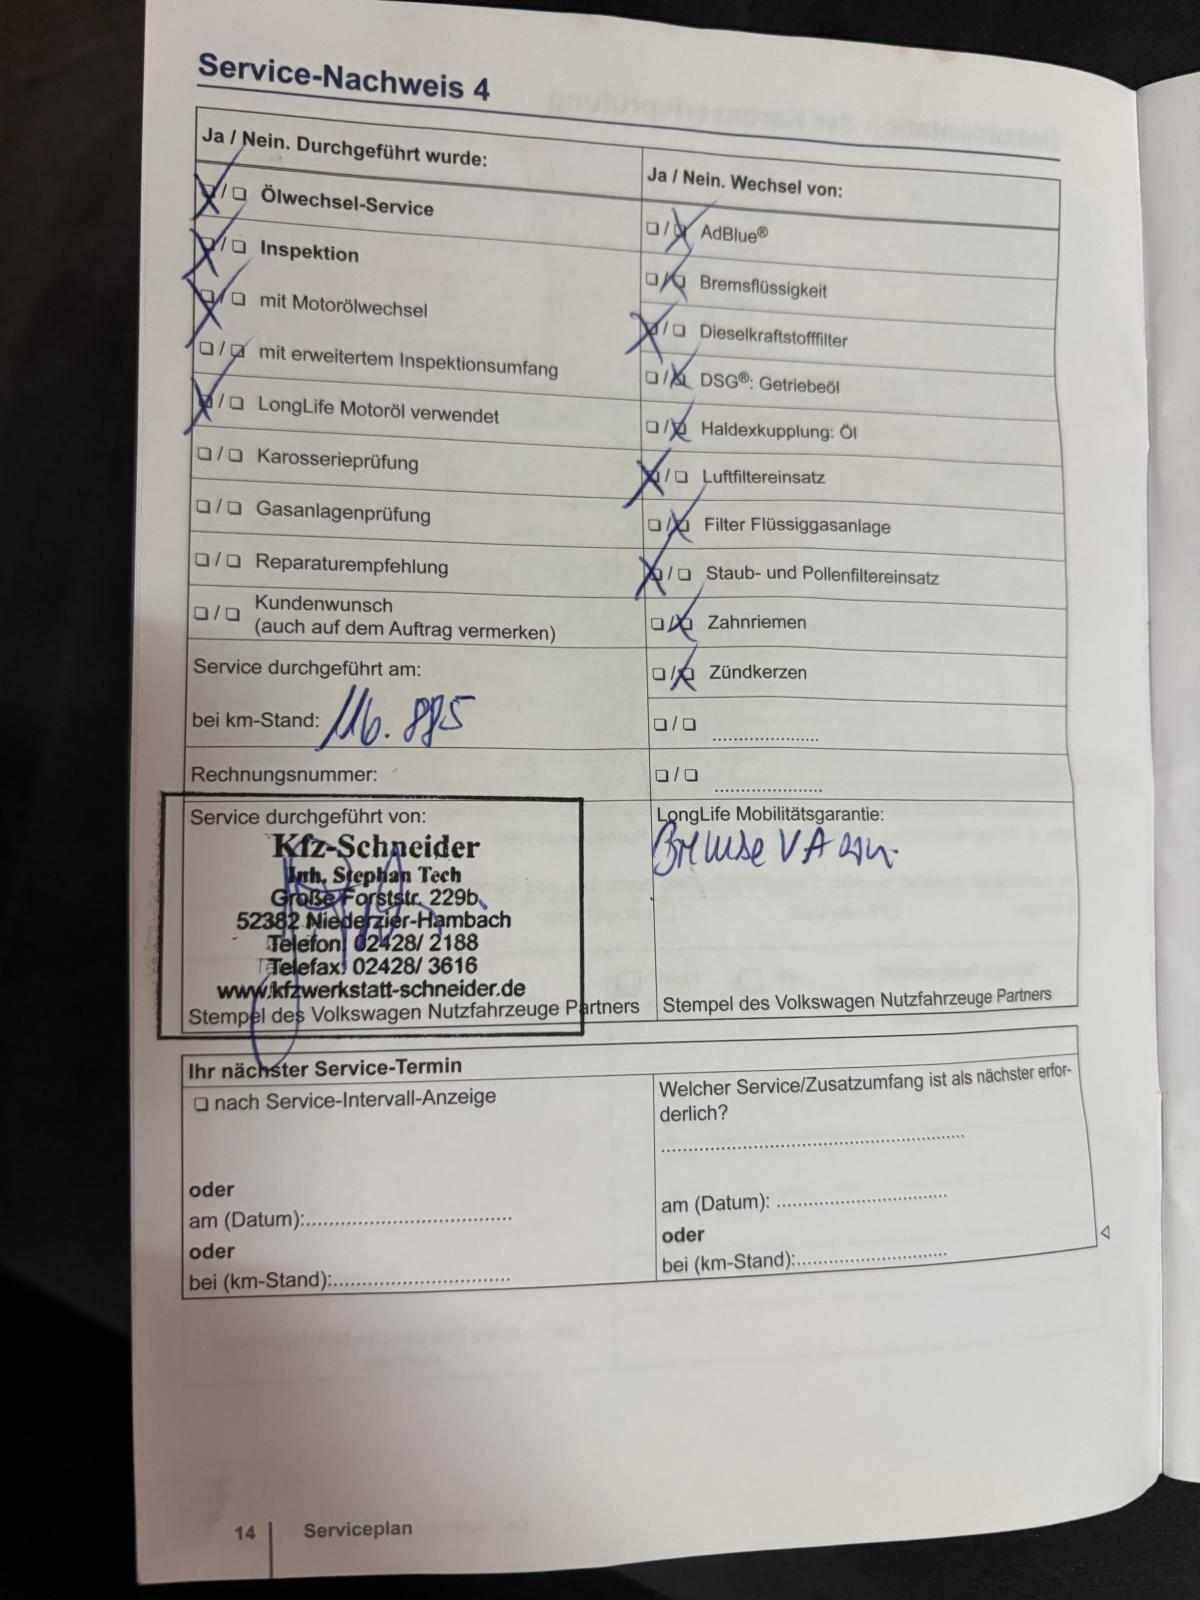 Service-Nachweis 4
Ja / Nein. Durchgeführt wurde:
❏ / ❏ Ölwechsel-Service
❏ / ❏ Inspektion
❏ / ❏ mit Motorölwechsel
❏ / ❏ mit erweitertem Inspektionsumfang
❏ / ❏ LongLife Motoröl verwendet
❏ / ❏ Karosserieprüfung
❏ / ❏ Gasanlagenprüfung
❏ / ❏ Reparaturempfehlung
❏ / ❏ Kundenwunsch
(auch auf dem Auftrag vermerken)
Service durchgeführt am:
bei km-Stand: 116.885
Rechnungsnummer:
Service durchgeführt von:
Kfz-Schneider
Inh. Stephan Tech
Große Forststr. 229b
52382 Niederzier-Hambach
Telefon: 02428/ 2188
Telefax: 02428/ 3616
www.kfzwerkstatt-schneider.de
Stempel des Volkswagen Nutzfahrzeuge Partners
Ja / Nein. Wechsel von:
❏ / ❏ AdBlue®
❏ / ❏ Bremsflüssigkeit
❏ / ❏ Dieselkraftstofffilter
❏ / ❏ DSG®: Getriebeöl
❏ / ❏ Haldexkupplung: Öl
❏ / ❏ Luftfiltereinsatz
❏ / ❏ Filter Flüssiggasanlage
❏ / ❏ Staub- und Pollenfiltereinsatz
❏ / ❏ Zahnriemen
❏ / ❏ Zündkerzen
❏ / ❏ .....................
❏ / ❏ .....................
LongLife Mobilitätsgarantie:
Bremse VA
Stempel des Volkswagen Nutzfahrzeuge Partners
Ihr nächster Service-Termin
❏ nach Service-Intervall-Anzeige
oder
am (Datum):.........................................
oder
bei (km-Stand):...................................
Welcher Service/Zusatzumfang ist als nächster erfor-
derlich?
............................................................
am (Datum): .................................
oder
bei (km-Stand):..............................
14 Serviceplan